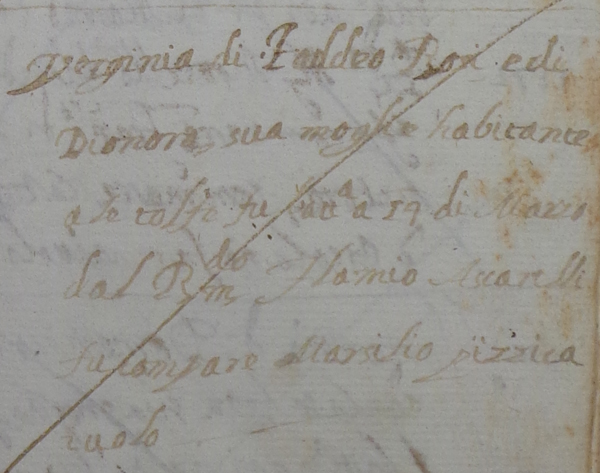 Verginia di Taddeo Box e di
Dionora sua moglie habitante
a le tolfe fu batt.a a 19 di Marzo
dal R.do m. Flamio Ascarelli
fu Compare Marsilio pizzica
iuolo